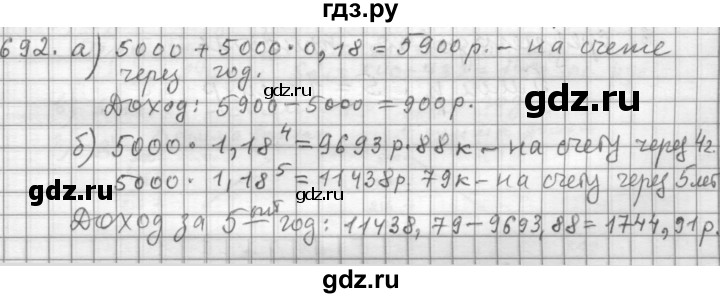 гдз.ру
692. а) 5000 + 5000 · 0,18 = 5900 р. – на счете
через год.
gdz.ru
Доход: 5900 – 5000 = 900 р.
gdz.ru
б) 5000 · 1,18⁴ = 9693 р. 88 к – на счету через 4 г.
5000 · 1,18⁵ = 11438 р. 79 к – на счету через 5 лет
gdz.ru
gdz.ru
Доход за 5 ый год: 11438,79 – 9693,88 = 1744,91 р.
gdz.ru